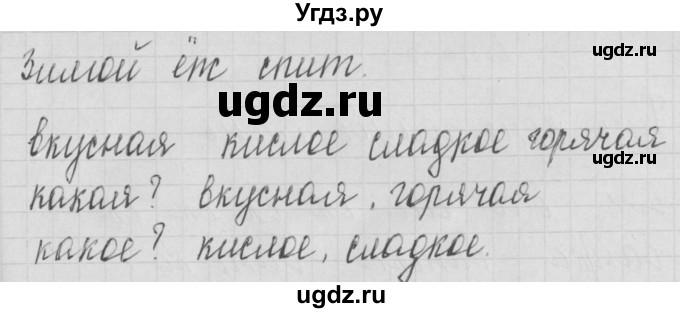 Угдз.ру
Угдз.ру
Зимой ёж спит.
ugdz.ru
вкусная кислое сладкое горячая
ugdz.ru
какая? вкусная, горячая
какое? кислое, сладкое.
ugdz.ru
ugdz.ru